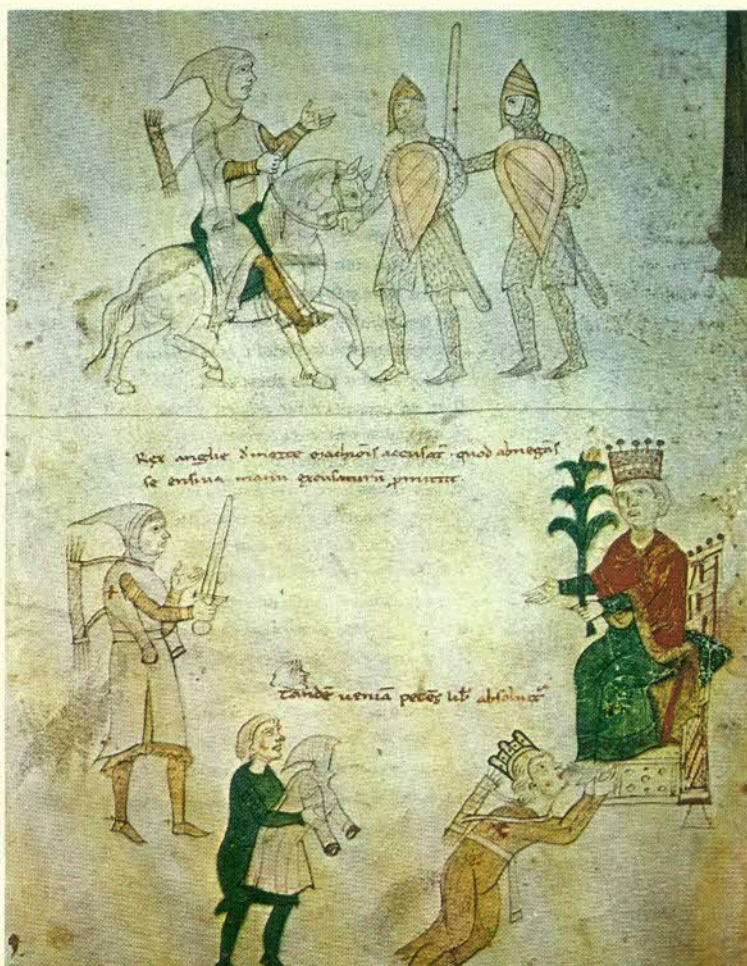 Rex anglie d' morte marchiōis accusat᷑. quod abnegās
se ensiua manu excusaturū ꝓmittit.
Tandē ueniā petēs lib᷑ absoluit᷑